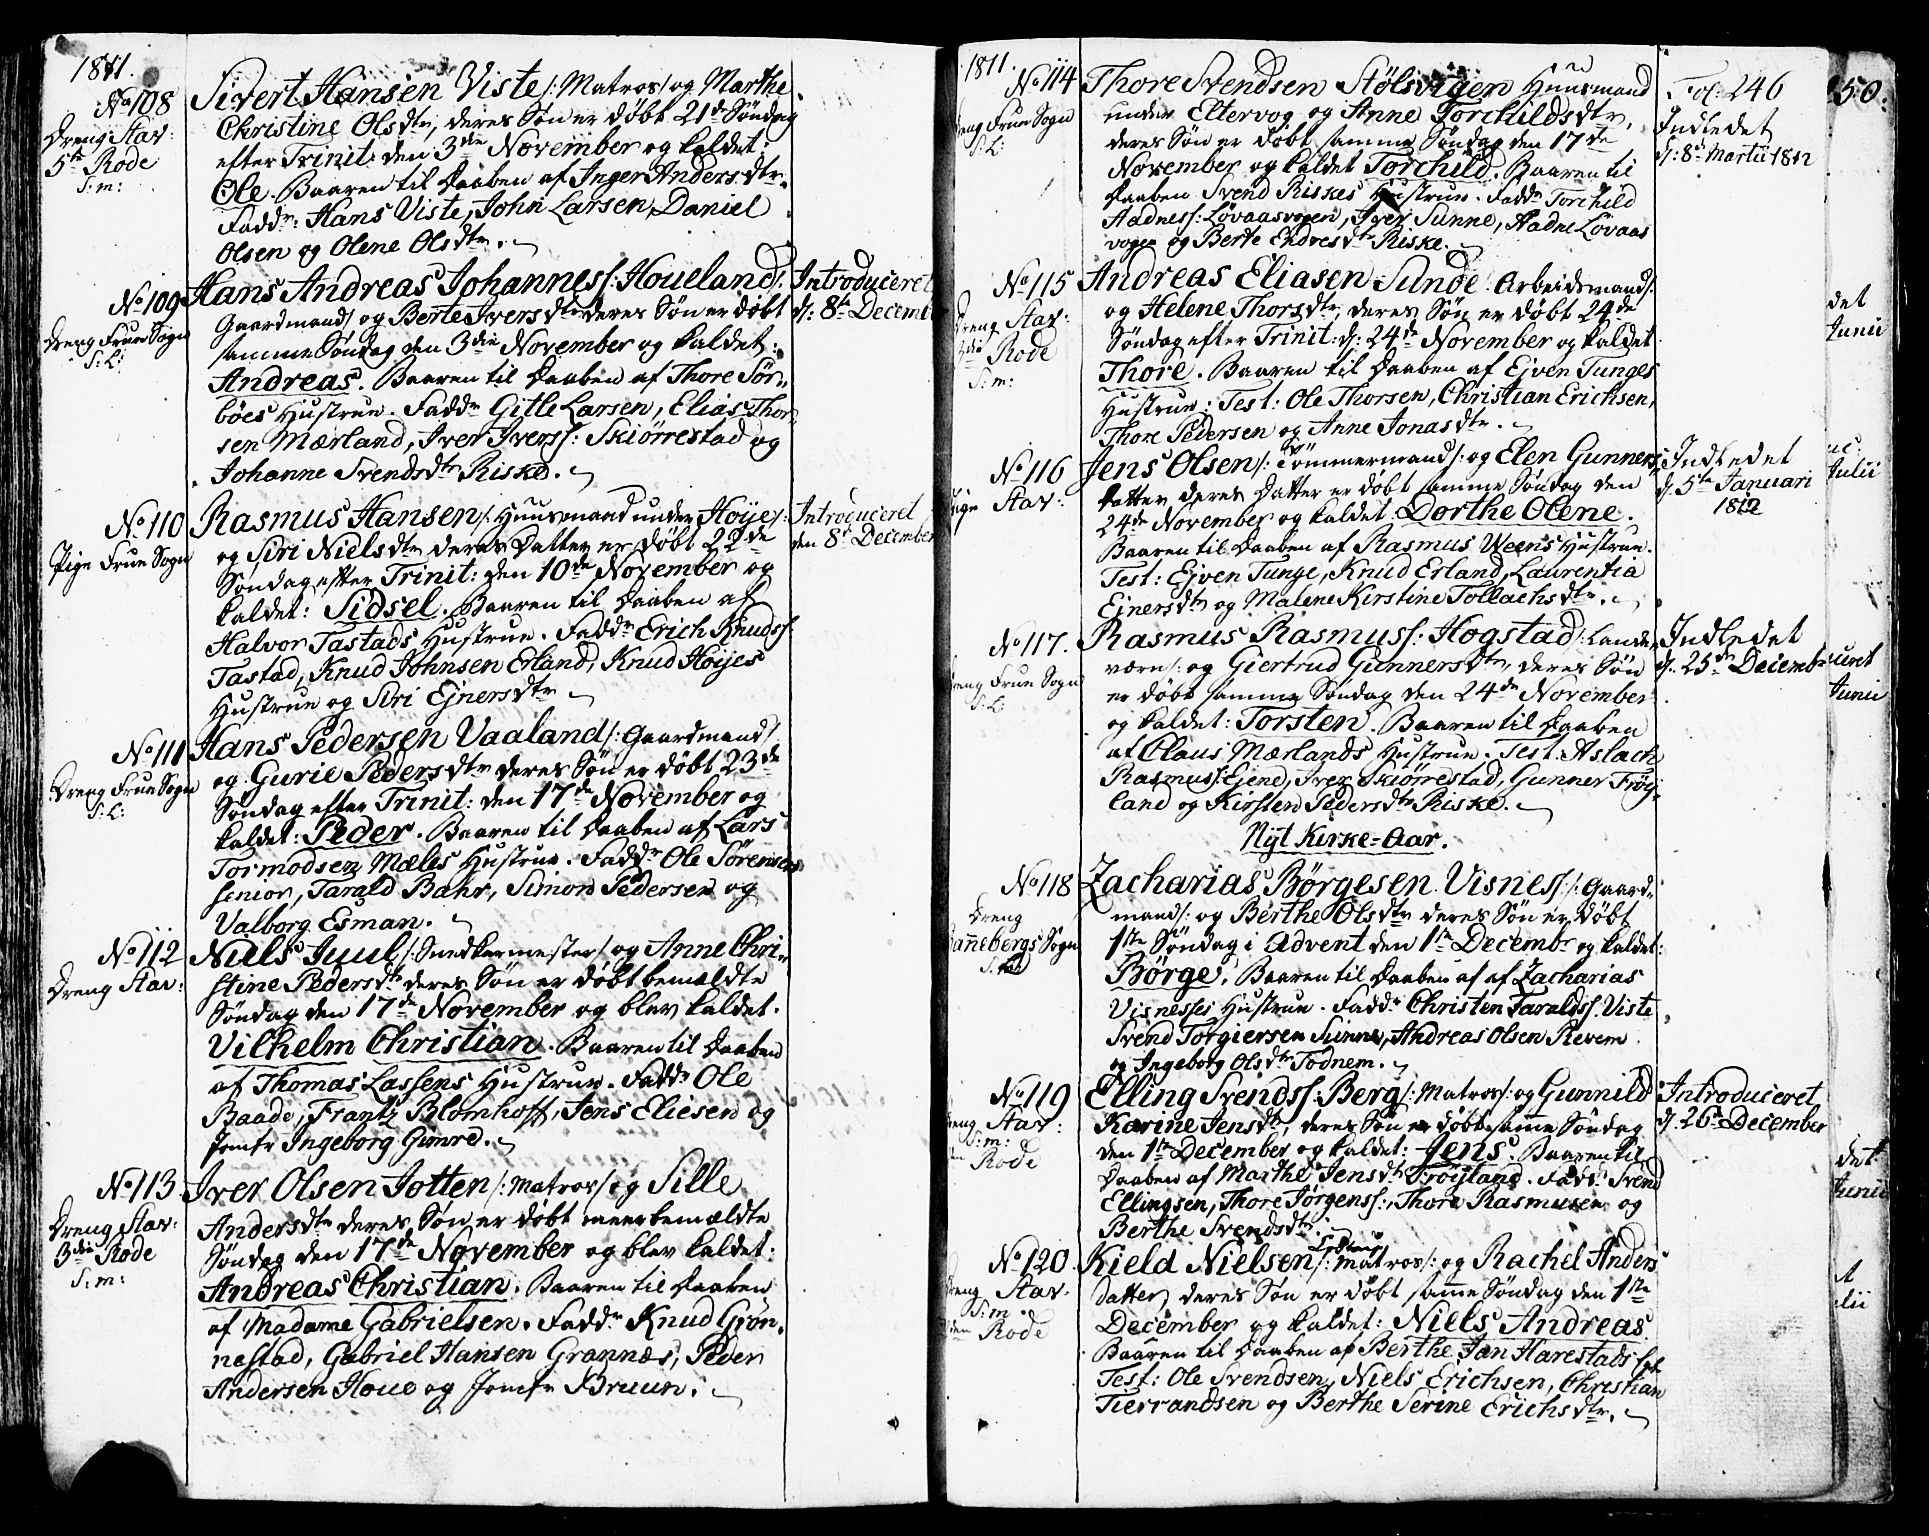 1811.
No 108
Dreng Stav:
5te Rode
S:m:
Sivert Hansen Viste /: Matros/ og Marthe
Christine Olsdtr, deres Søn er døbt 21de Søndag
efter Trinit: den 3die November og kaldet:
Ole. Baaren til Daaben af Inger Andersdtr.
Faddr: Hans Viste, John Larsen, Daniel
Olsen og Olene Olsdtr.
No 109
Dreng Frue Sogn
S:L:
Hans Andreas Johanness: Houeland/:
Gaardmand/ og Berte Iversdtr deres Søn er døbt
samme Søndag den 3die November og kaldet:
Andreas. Baaren til Daaben af Thore Sør-
böes Hustrue. Faddr Gitle Larsen, Elias Thor-
sen Mærland, Iver Iverss: Skiörrestad og
Johanne Svendsdtr Riske.
Introduceret
d: 8de Decemb
No 110
Pige Frue Sogn
Rasmus Hansen /: Huusmand under Høije/:
og Siri Nielsdtr deres Datter er døbt 22de
Søndag efter Trinit: den 10de November og
kaldet: Sidsel. Baaren til Daaben af
Halvor Tastads Hustrue. Faddr Erich Knudss:
Tastad, Knud Johnsen Erland, Knud Høijes
Hustrue og Siri Ejnersdtr
Introduceret
den 8de December
No 111
Dreng Frue Sogn
S:L:
Hans Pedersen Vaaland /: Gaardmand/
og Gurie Pedersdtr deres Søn er døbt 23de
Søndag efter Trinit: den 17de November og
kaldet: Peder. Baaren til Daaben af Lars
Tormodsen Mæles Hustrue. Faddr Ole Sørensen
senior, Tarald Bahr, Simon Pedersen og
Valborg Esman.
No 112
Dreng Stav:
Niels Juul /: Snedkermester/ og Anne Chri-
stine Pedersdtr deres Søn er døbt bemældte
Søndag den 17de November og blev kaldet.
Vilhelm Christian. Baaren til Daaben
af Thomas Lassens Hustrue. Faddr Ole
Baade, Frantz Blomhoff, Jens Eliesen og
Jomfr Ingeborg Gimre.
No 113
Dreng Stav:
3die Rode
S:m:
Iver Olsen Jotten /: Matros/ og Sille
Andersdtr deres Søn er døbt meerbemældte
Søndag den 17de November og blev kaldet:
Andreas Christian. Baaren til Daaben
af Madame Gabrielsen. Faddr Knud Grön-
nestad, Gabriel Hansen Grannæs, Peder
Andersen Houe og Jomfr Bruun.
1811.
No 114
Dreng Frue Sogn
S:L:
Thore Svendsen Stølsvigen Huusmand
under Eltervog og Anne Torchildsdtr,
deres Søn er døbt samme Søndag den 17de
November og kaldet Torchild. Baaren til
Daaben Svend Riskes Hustrue. Faddr Torchild
Aadness: Lövaasvogen, Iver Sunne, Aadne Lövaas
vogen og Berte Endresdtr Riske.
Fol: 246
Indledet
d: 8de Martii 1812
No 115
Dreng Stav:
3die Rode
S:m:
Andreas Eliasen Sunde. Arbeidsmand/:
og Helene Thorsdtr, deres Søn er døbt 24de
Søndag efter Trinit: d: 24de November og kaldet
Thore. Baaren til Daaben af Ejven Tunges
Hustrue: Test: Ole Thorsen, Christian Erichsen,
Thore Pedersen og Anne Jonasdtr.
No 116
Pige Stav:
Jens Olsen /: Tømmermand/: og Elen Gunners
datter deres Datter er døbt samme Søndag den
24de November og kaldet Dorthe Olene.
Baaren til Daaben af Rasmus Weens Hustrue.
Test: Ejven Tunge, Knud Erland, Laurentia
Ejnersdtr og Malene Kirstine Tollachsdtr.
Indledet
d: 5te Januari
1812
No 117.
Dreng Frue Sogn
S:L:
Rasmus Rasmuss: Hogstad /: Lande-
værn/: og Giertrud Gunnersdtr, deres Søn
er døbt samme Søndag den 24de November
og kaldet: Torsten. Baaren til Daaben
af Claus Mærlands Hustrue. Test: Aslach
Rasmuss: Gjene, Iver Skiörrestad, Gunner Fröy-
land og Kirsten Pedersdtr Riske.
Indledet
d: 25de Decemb
Nyt Kirke-Aar.
No 118
Dreng
Hannebergs Sogn
Zacharias Børgesen Visnes /: Gaard-
mand/: og Berthe Olsdtr deres Søn er døbt
1ste Søndag i Advent den 1ste Decembr og kaldet:
Børge. Baaren til Daaben af af Zacharias
Visneses Hustrue. Faddr Christen Taraldss: Viste
Svend Torgiersen Sunne, Andreas Olsen Revem
og Ingeborg Olsdtr Todnem.
No 119
Dreng Stav:
S:m:
Rode
Elling Svendss: Berg /: Matros/: og Gunnild
Karine Jensdtr, deres Søn er døbt samme Søndag
den 1ste December og kaldet: Jens. Baaren til
Daaben af Marthe Jensdtr Fröyland. Faddr Svend
Ellingsen, Thore Jørgenss:, Thore Rasmusen og
Berthe Svendsdtr.
Introduceret
d: 26de December
No 120.
Dreng Stav.
S:m.
Rode
Kield Nielsen /: Matros/: og Rachel Anders
datter, deres Søn er døbt samme Søndag den 1ste
December og kaldet: Niels Andreas
Baaren til Daaben af Berthe Jan Harestads
Test: Ole Svendsen, Niels Erichsen, Christian
Tierrandsen og Berthe Serine Erichsdtr.
250.
det
Junii
Julii
ceret
Junii
det
Junii